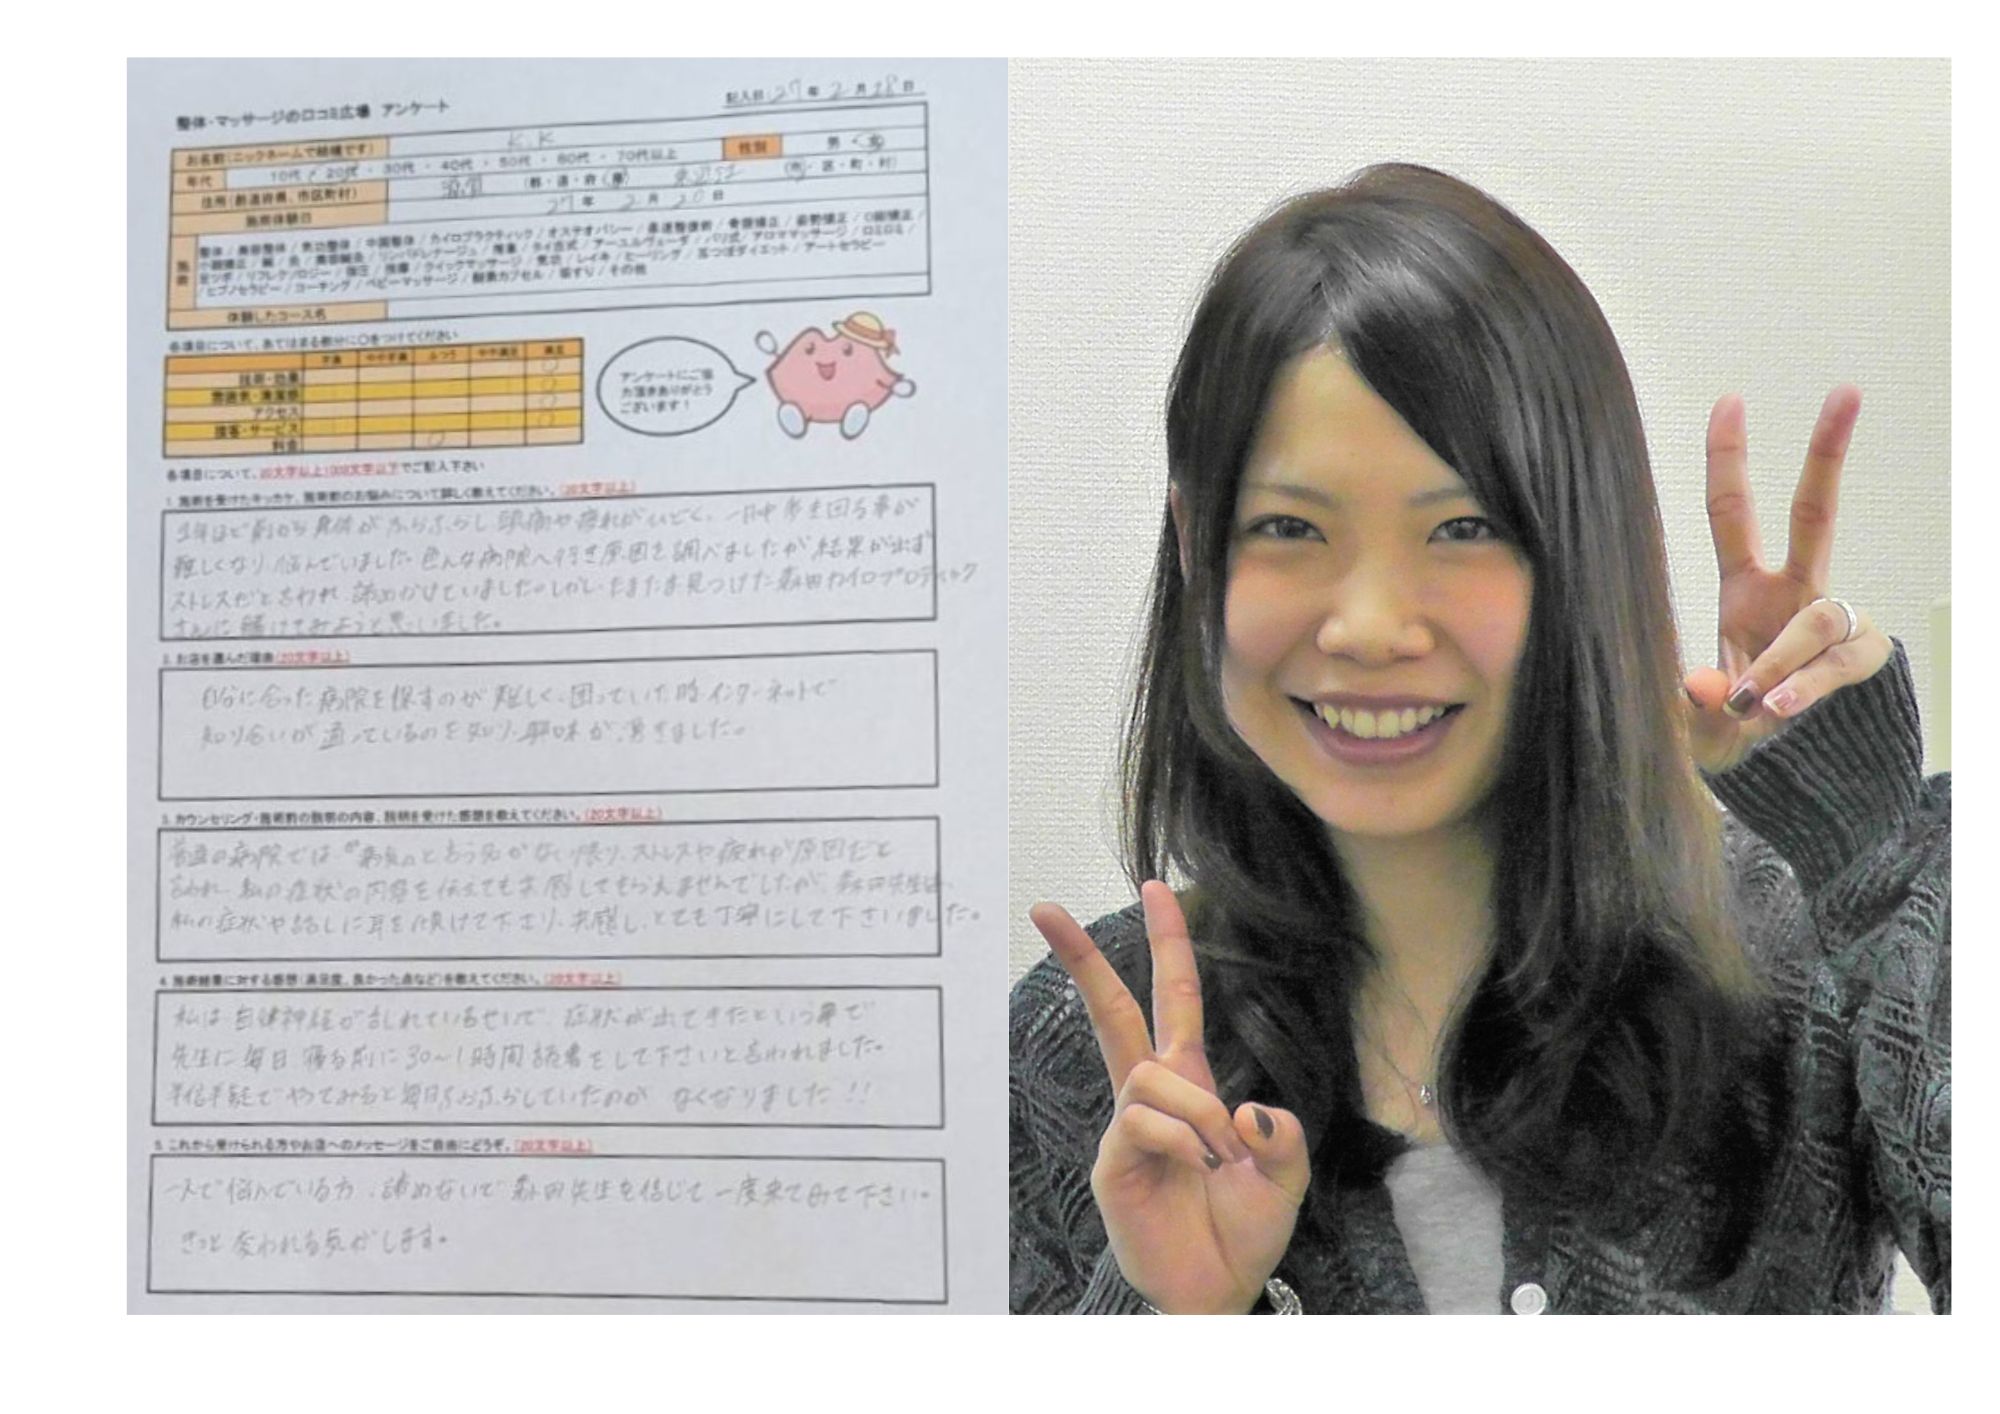 整体・マッサージの口コミ広場 アンケート
記入日 27年 2月 28日
お名前(ニックネームで結構です) K.K 性別 男・女
年代 10代・20代・30代・40代・50代・60代・70代以上
住所(都道府県、市区町村) 滋賀 (都・道・府・県) (市・区・町・村)
施術体験日 27年 2月 20日
整体 / 美容整体 / 気功整体 / 中国整体 / カイロプラクティック / オステオパシー / 柔道整復術 / 骨盤矯正 / 姿勢矯正 / O脚矯正 /
小顔矯正 / 鍼 / 灸 / 美容鍼灸 / リンパドレナージュ / 推拿 / タイ古式 / アーユルヴェーダ / バリ式 / アロママッサージ / ロミロミ /
足ツボ / リフレクソロジー / 指圧 / 按摩 / クイックマッサージ / 気功 / レイキ / ヒーリング / 耳つぼダイエット / アートセラピー
/ ヒプノセラピー / コーチング / ベビーマッサージ / 酸素カプセル / 垢すり / その他
体験したコース名
各項目について、あてはまる部分に○をつけてください
不満 やや不満 ふつう やや満足 満足
技術・効果
雰囲気・清潔感
アクセス
接客・サービス
料金
アンケートにご協
力頂きありがとう
ございます！
各項目について、20文字以上1000文字以下でご記入下さい
1. 施術を受けたキッカケ、施術前のお悩みについて詳しく教えてください。(20文字以上)
1年ほど前から身体がふらふらし頭痛や疲れがひどく、一日中歩き回る事が
難しくなり、悩んでいました。色んな病院へ行き原因を調べましたが結果が出ず
ストレスだと言われ、諦めかけていました。しかし、たまたま見つけた森田カイロプロティック
さんに賭けてみようと思いました。
2. お店を選んだ理由(20文字以上)
自分に合った病院を探すのが難しく、困っていた時インターネットで
知り合いが通っているのを知り、興味が湧きました。
3. カウンセリング・施術前の説明の内容、説明を受けた感想を教えてください。(20文字以上)
普通の病院では、"病気"と言う名がない限り、ストレスや疲れが原因だと
言われ、私の症状の内容を伝えても共感してもらえませんでしたが、森田先生は、
私の症状や話しに耳を傾けて下さり、共感し、とても丁寧にして下さいました。
4. 施術結果に対する感想(満足度、良かった点など)を教えてください。(20文字以上)
私は自律神経が乱れているせいで、症状が出てきたという事で
先生に毎日寝る前に30〜1時間読書をして下さいと言われました。
半信半疑でやってみると毎日ふらふらしていたのが なくなりました!!
5. これから受けられる方やお店へのメッセージをご自由にどうぞ。(20文字以上)
一人で悩んでいる方、諦めないで森田先生を信じて一度来てみて下さい。
きっと変われる気がします。